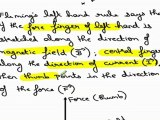 Fleming's left hand rule says that
if the fore finger of left hand is
stretched along the direction of
magnetic field (B), central finger
along the direction of current (I),
then thumb points in the direction
of the force (F)
Force (Thumb)